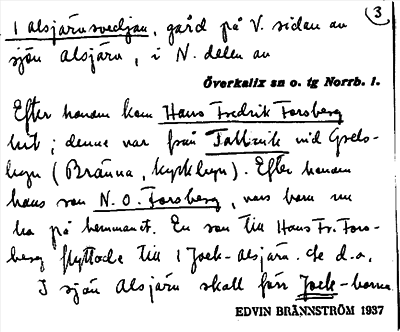 3
1 alsjärnsvedjan, gård på V. sidan av
sjön alsjärn, i N. delen av
Överkalix sn o. tg Norrb. l.
Efter honom kom Hans Fredrik Forsberg
hit; denne var från Tallvik vid Grels-
byn (Bränna, kyrkbyn). Efter honom
hans son N. O. Forsberg, vars barn nu
bo på hemmanet. En son till Hans Fr. Fors-
berg flyttade till 1 Jock-alsjärn. Se d.o.
I sjön Alsjärn skall förr Jock-barna
EDVIN BRÄNNSTRÖM 1937